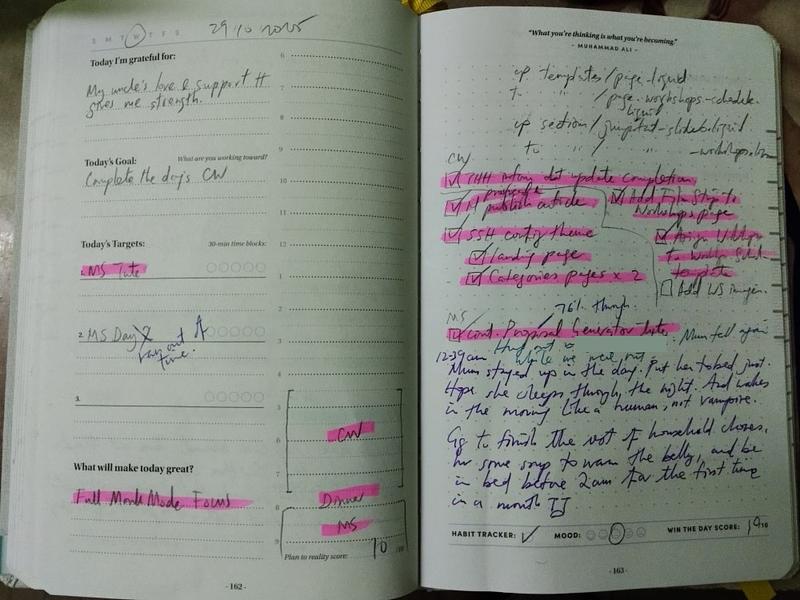 S M T W T F S
29 10 2025
Today I'm grateful for:
My uncle's love & support. It
gives me strength.
Today's Goal:
What are you working toward?
Complete the day's CW
Today's Targets:
30-min time blocks:
1. MS Tute
2. MS Day 2
ran out
time.
3.
What will make today great?
Full Monk Mode Focus
6
7
8
9
10
11
12
1
2
3
4
5
CW
6
7
8
Dinner
MS
9
Plan to reality score:
10 /10
- 162 -
"What you're thinking is what you're becoming."
- MUHAMMAD ALI -
cp templates/page.liquid
to " " /page.workshops-schedule.
liquid
cp section/
to " " / "
CW
update completion
publish article
SSH config theme
Landing page
Categories pages x 2
Add Film Strip to
Workshops page
Assign
template
Add WS images
76% through
MS
cont. Proposal Generator
Mum fell again
while we were out.
12:39am
Mum stayed up in the day. Put her to bed just.
Hope she sleeps through the night. And wakes
in the morning like a human, not vampire.
Go to finish the rest of household chores,
some soup to warm the belly, and be
in bed before 2am for the first time
in a month
HABIT TRACKER:
MOOD:
WIN THE DAY SCORE:
/10
- 163 -